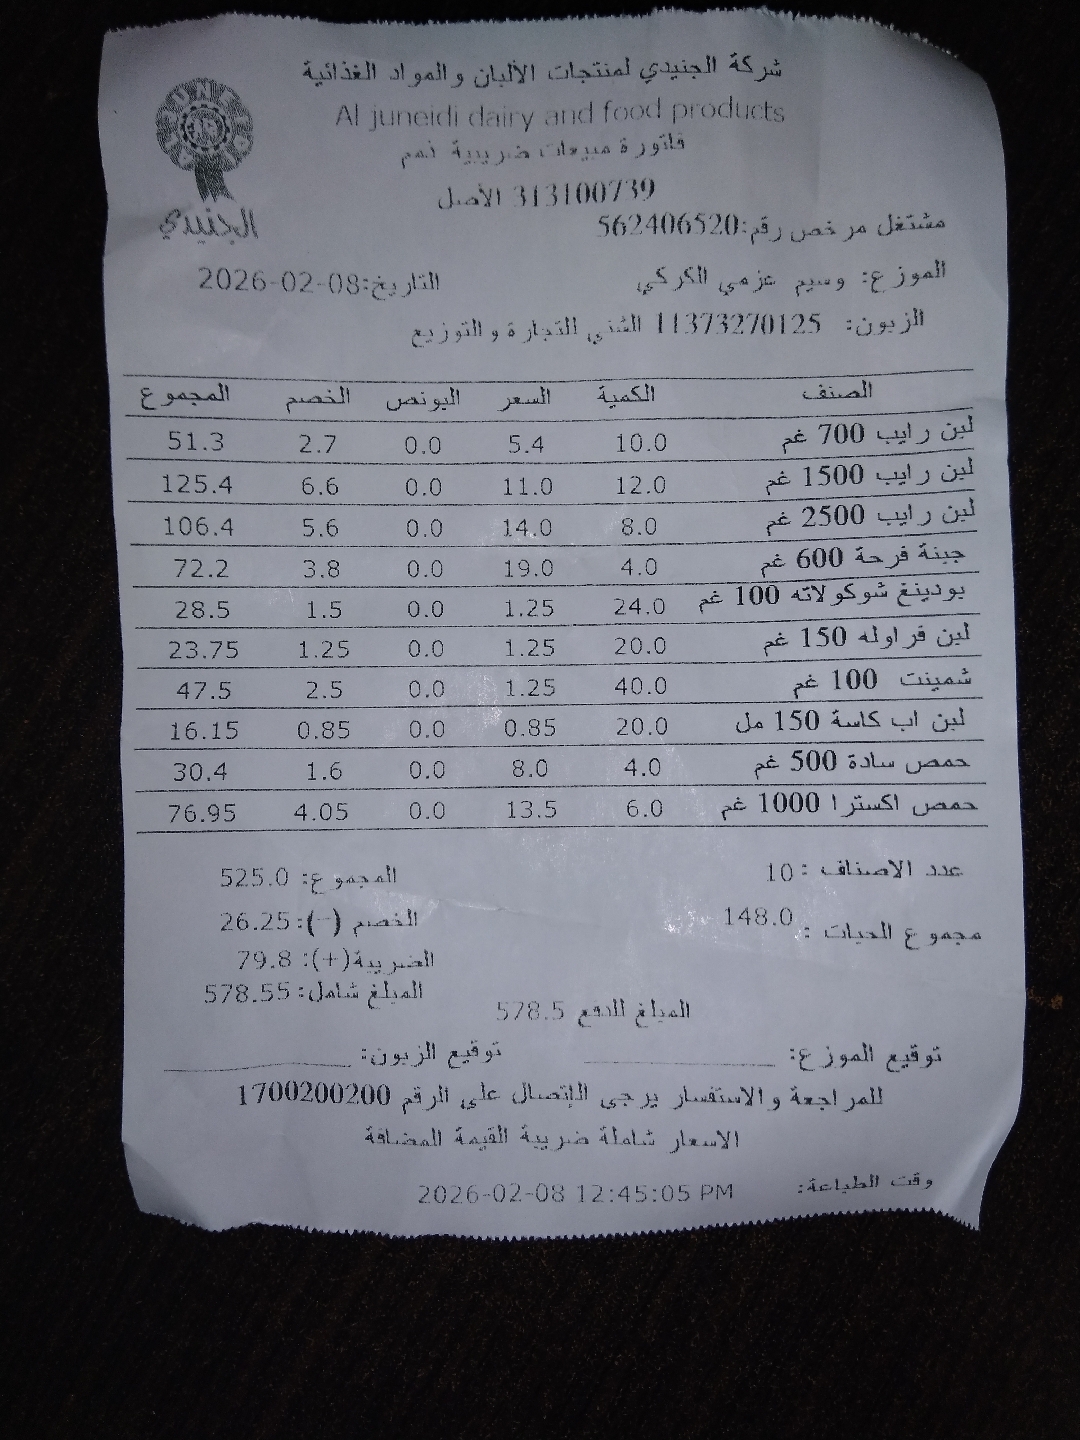 شركة الجنيدي لمنتجات الألبان والمواد الغذائية
Al juneidi dairy and food products
فاتورة مبيعات ضريبية ذمم
313100739 الأصل
مشتغل مرخص رقم:562406520
الموزع: وسيم عزمي الكركي التاريخ:2026-02-08
الزبون: 11373270125 الشني للتجارة والتوزيع
الجنيدي
الصنف الكمية السعر البونص الخصم المجموع
لبن رايب 700 غم 10.0 5.4 0.0 2.7 51.3
لبن رايب 1500 غم 12.0 11.0 0.0 6.6 125.4
لبن رايب 2500 غم 8.0 14.0 0.0 5.6 106.4
جبنة فرحة 600 غم 4.0 19.0 0.0 3.8 72.2
بودينغ شوكولاته 100 غم 24.0 1.25 0.0 1.5 28.5
لبن فراوله 150 غم 20.0 1.25 0.0 1.25 23.75
شمينت 100 غم 40.0 1.25 0.0 2.5 47.5
لبن اب كاسة 150 مل 20.0 0.85 0.0 0.85 16.15
حمص سادة 500 غم 4.0 8.0 0.0 1.6 30.4
حمص اكسترا 1000 غم 6.0 13.5 0.0 4.05 76.95
عدد الاصناف : 10 المجموع: 525.0
مجموع الحبات : 148.0 الخصم (-): 26.25
الضريبة(+): 79.8
المبلغ شامل: 578.55
المبلغ للدفع 578.5
توقيع الموزع: توقيع الزبون:
للمراجعة والاستفسار يرجى الإتصال على الرقم 1700200200
الاسعار شاملة ضريبة القيمة المضافة
وقت الطباعة: 2026-02-08 12:45:05 PM